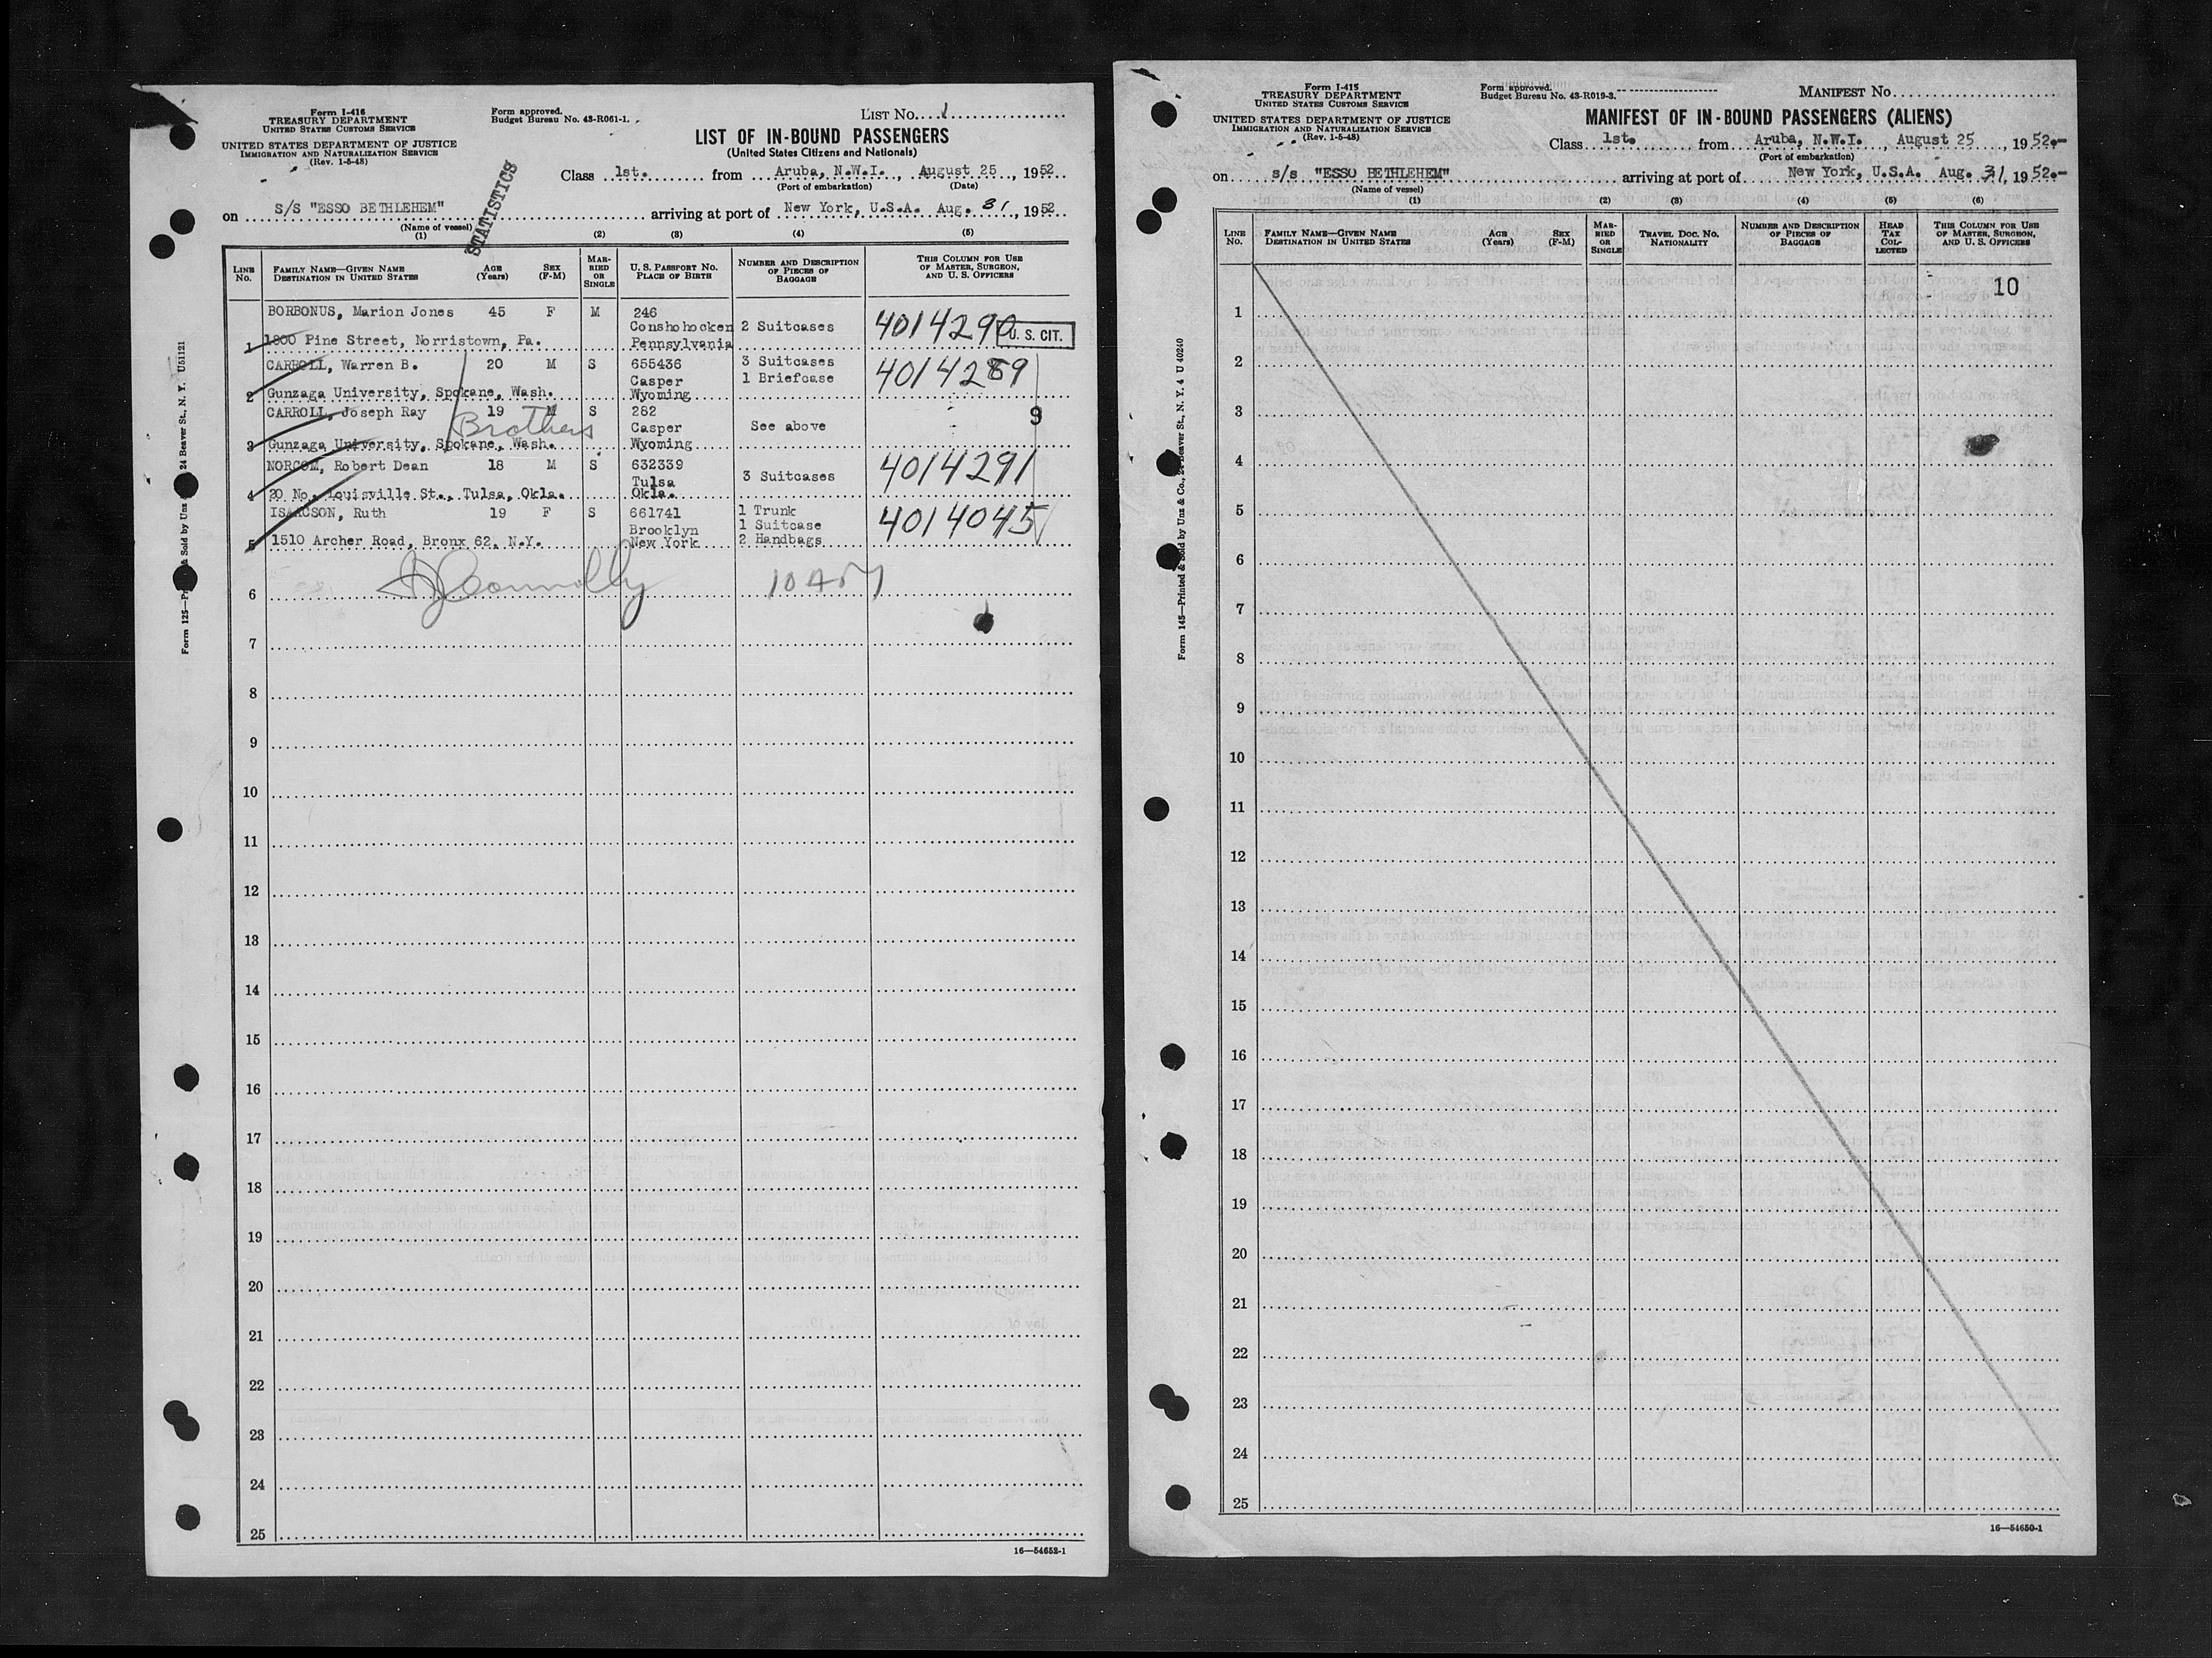 Form I-416
TREASURY DEPARTMENT
UNITED STATES CUSTOMS SERVICE
UNITED STATES DEPARTMENT OF JUSTICE
IMMIGRATION AND NATURALIZATION SERVICE
(Rev. 1-5-48)
Form approved.
Budget Bureau No. 43-R061-1.
LIST No. 1
LIST OF IN-BOUND PASSENGERS
(United States Citizens and Nationals)
STATISTICS
Class 1st. from Aruba, N.W.I., August 25, 1952
(Port of embarkation) (Date)
on S/S "ESSO BETHLEHEM" arriving at port of New York, U.S.A. Aug. 31, 1952
(Name of vessel)
(1) (2) (3) (4) (5)
LINE No. FAMILY NAME—GIVEN NAME DESTINATION IN UNITED STATES AGE (Years) SEX (F-M) MARRIED OR SINGLE U. S. PASSPORT No. PLACE OF BIRTH NUMBER AND DESCRIPTION OF PIECES OF BAGGAGE THIS COLUMN FOR USE OF MASTER, SURGEON, AND U. S. OFFICERS
BORBONUS, Marion Jones 45 F M 246
Conshohocken 2 Suitcases 4014290 U. S. CIT.
1 1800 Pine Street, Norristown, Pa. Pennsylvania
CARROLL, Warren B. 20 M S 655436 3 Suitcases
Casper 1 Briefcase 4014289
2 Gunzaga University, Spokane, Wash. Wyoming
CARROLL, Joseph Ray 19 M S 282 9
Brothers Casper See above
3 Gunzaga University, Spokane, Wash. Wyoming
NORCOM, Robert Dean 18 M S 632339 4014291
Tulsa 3 Suitcases
4 20 No. Louisville St., Tulsa, Okla. Okla.
ISAACSON, Ruth 19 F S 661741 1 Trunk 4014045
Brooklyn 1 Suitcase
5 1510 Archer Road, Bronx 62, N.Y. New York 2 Handbags
Connolly 10 AM
6
7
8
9
10
11
12
13
14
15
16
17
18
19
20
21
22
23
24
25
16—54652-1
24 Beaver St., N. Y. U51121
Form I-415
TREASURY DEPARTMENT
UNITED STATES CUSTOMS SERVICE
UNITED STATES DEPARTMENT OF JUSTICE
IMMIGRATION AND NATURALIZATION SERVICE
(Rev. 1-5-48)
Form approved.
Budget Bureau No. 43-R019-3.
MANIFEST No.
MANIFEST OF IN-BOUND PASSENGERS (ALIENS)
Class 1st. from Aruba, N.W.I., August 25, 1952.-
(Port of embarkation)
on s/s "ESSO BETHLEHEM" arriving at port of New York, U.S.A. Aug. 31, 1952.-
(Name of vessel)
(1) (2) (3) (4) (5) (6)
LINE No. FAMILY NAME—GIVEN NAME DESTINATION IN UNITED STATES AGE (Years) SEX (F-M) MARRIED OR SINGLE TRAVEL DOC. No. NATIONALITY NUMBER AND DESCRIPTION OF PIECES OF BAGGAGE HEAD TAX COLLECTED THIS COLUMN FOR USE OF MASTER, SURGEON, AND U. S. OFFICERS
10
1
2
3
4
5
6
7
8
9
10
11
12
13
14
15
16
17
18
19
20
21
22
23
24
25
16—54650-1
Form 145—Printed & Sold by Unz & Co., 24 Beaver St., N. Y. 4 U 40240